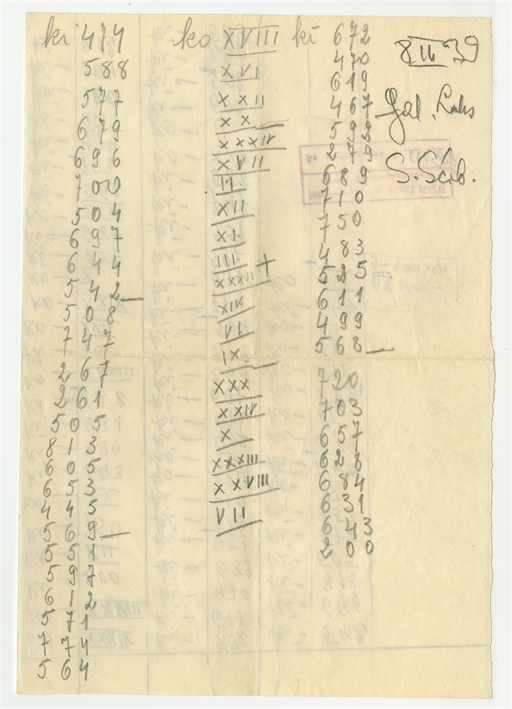 ki 474
588
577
679
696
700
504
697
644
542 —
508
747
267
261
505
813
605
653
445
569 —
551
597
612
571
774
564
ko XVIII
XVI
XXII
XX —
XXXIV
XVII
II
XII
XI
III +
XXXII
XIV
VI
IX —
XXX
XXIV
X
XXXIII
XXVIII
VII
ki 672
470
619
467
592
279
689
710
750
483
525
611
499
568 —
720
703
657
628
684
631
643
200
8 II 39
Gal.
S. Szob.